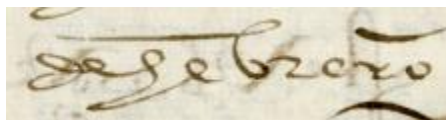 de hebrero